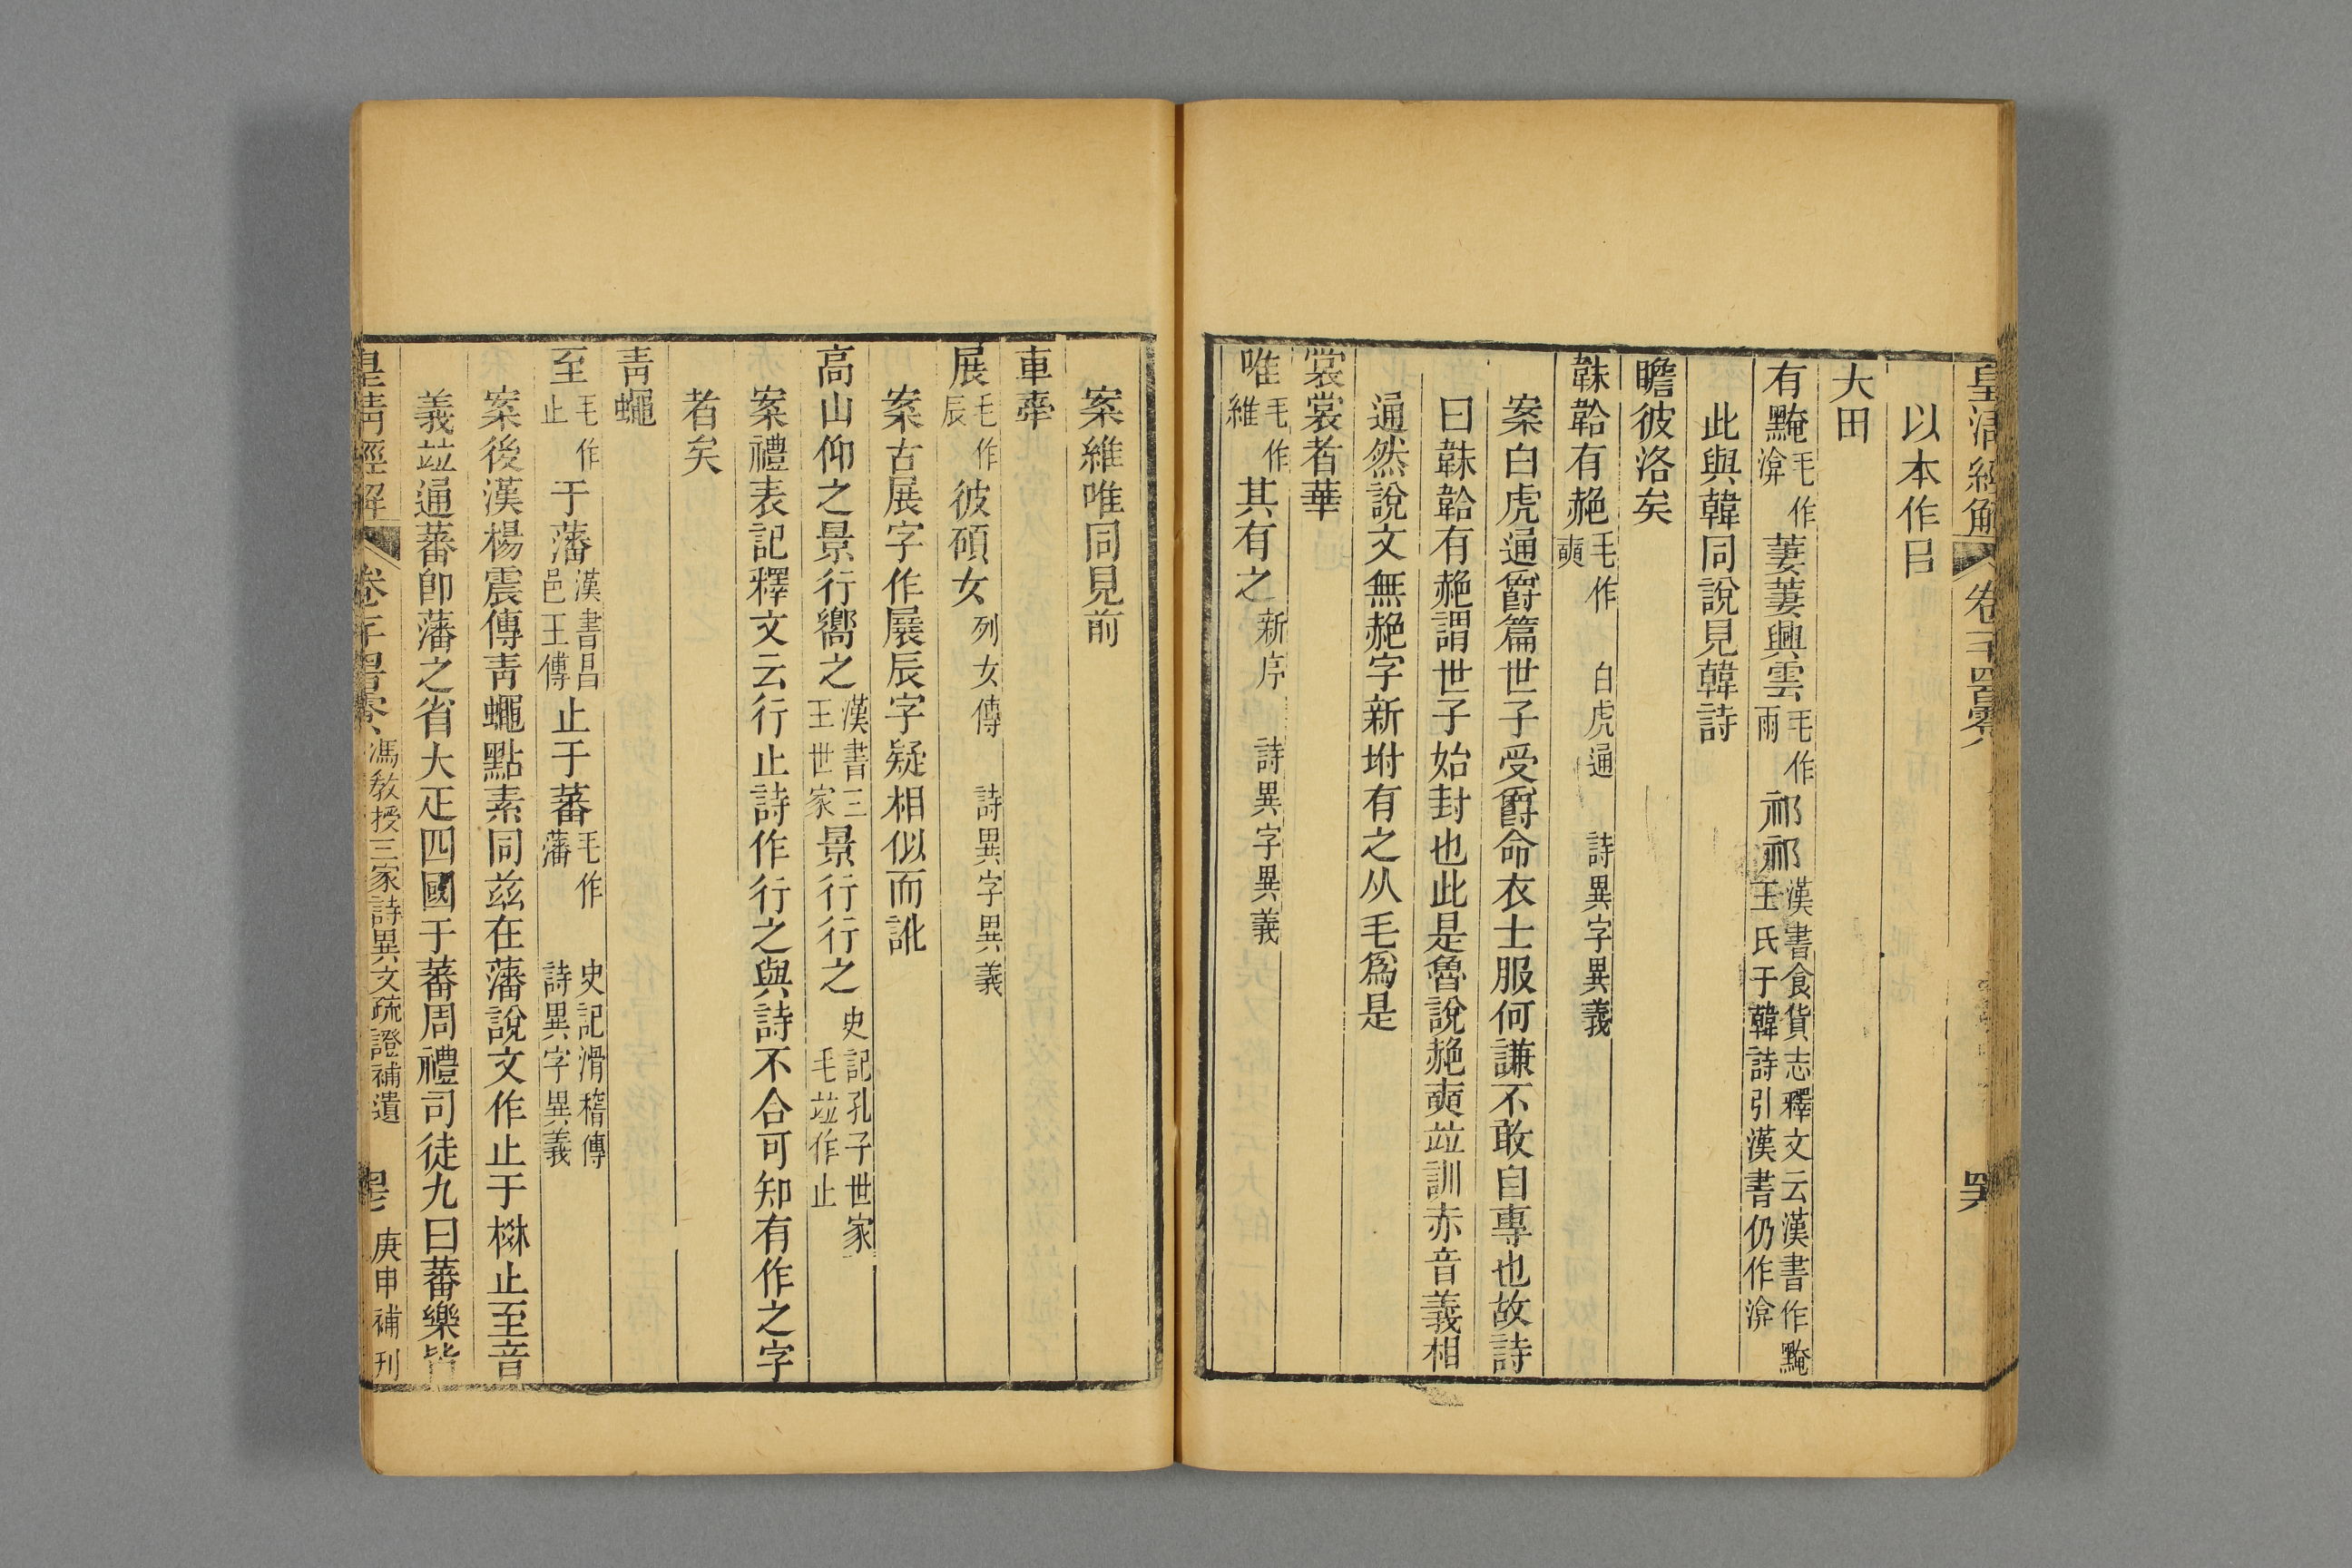 皇清經解 卷千四百零八
以本作㠯
大田
有黤毛作渰萋萋興雲毛作雨祁祁漢書食貨志釋文云漢書作黤王氏于韓詩引漢書仍作渰
此與韓同說見韓詩
瞻彼洛矣
韎韐有赩毛作奭 白虎通 詩異字異義
案白虎通爵篇世子受爵命衣士服何謙不敢自專也故詩
曰韎韐有赩謂世子始封也此是魯說赩奭竝訓赤音義相
通然說文無赩字新坿有之从毛爲是
裳裳者華
唯毛作維其有之 新序 詩異字異義
案維唯同見前
車舝
展毛作辰彼碩女 列女傳 詩異字異義
案古展字作㞡辰字疑相似而訛
高山仰之景行嚮之漢書三王世家景行行之史記孔子世家毛竝作止
案禮表記釋文云行止詩作行之與詩不合可知有作之字
者矣
靑蠅
至毛作止于藩漢書昌邑王傳止于蕃毛作藩 史記滑稽傳詩異字異義
案後漢楊震傳靑蠅點素同兹在藩說文作止于棥止至音
義竝通蕃卽藩之省大疋四國于蕃周禮司徒九曰蕃樂皆
皇清經解 卷千四百零八 馮敎授三家詩異文疏證補遺 庚申補刊